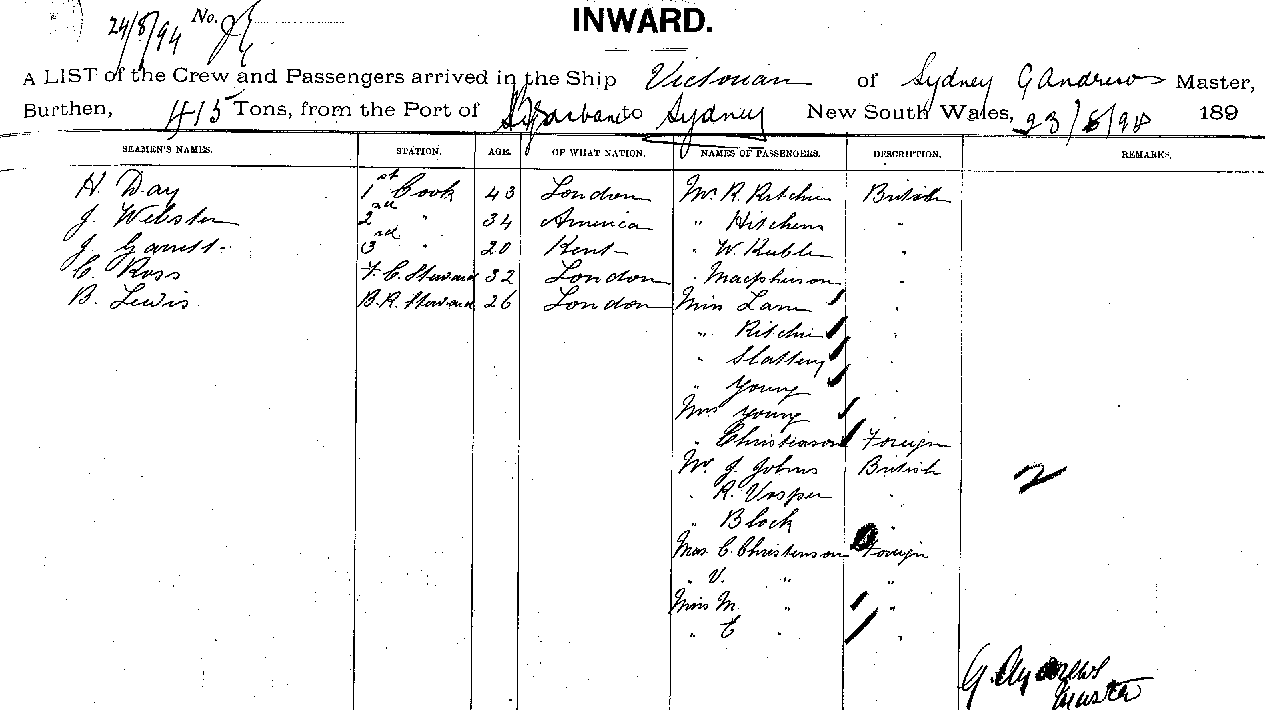 24/8/94 No.
INWARD.
A LIST of the Crew and Passengers arrived in the Ship Victorian of Sydney G Andrews Master,
Burthen, 415 Tons, from the Port of to Sydney New South Wales, 23/8/94 189
SEAMEN'S NAMES. STATION. AGE. OF WHAT NATION. NAMES OF PASSENGERS. DESCRIPTION. REMARKS.
H. Day 1st Cook 43 London Mr. R. Ritchie British
J. Webster 2nd " 34 America " Hitchens "
J. Garrett 3rd " 20 Kent " W. "
C. Ross F. C. Steward 32 London " Macpherson "
B. Lewis B. R. Steward 26 London Miss Lane "
" Ritchie "
" Slattery "
" Young "
Mrs Young "
" Christenson Foreign
Mr. J. Johns British
" R. Vosper "
" Block "
Mas. C. Christenson Foreign
" V. " "
Miss M. " "
" E " "
2
G. Andrews
Master